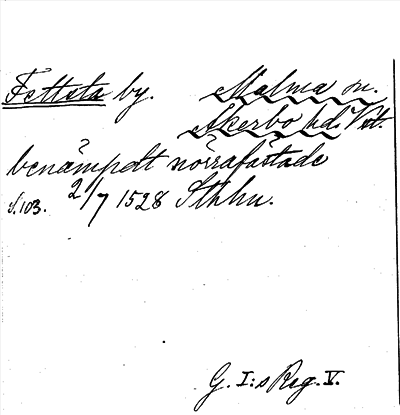 Fettsta by. Malma sn.
Åkerbo hd. Vstl.
benämpdt norrafastade
s.103. 2/7 1528 Sthlm.
G. I:s Reg. V.